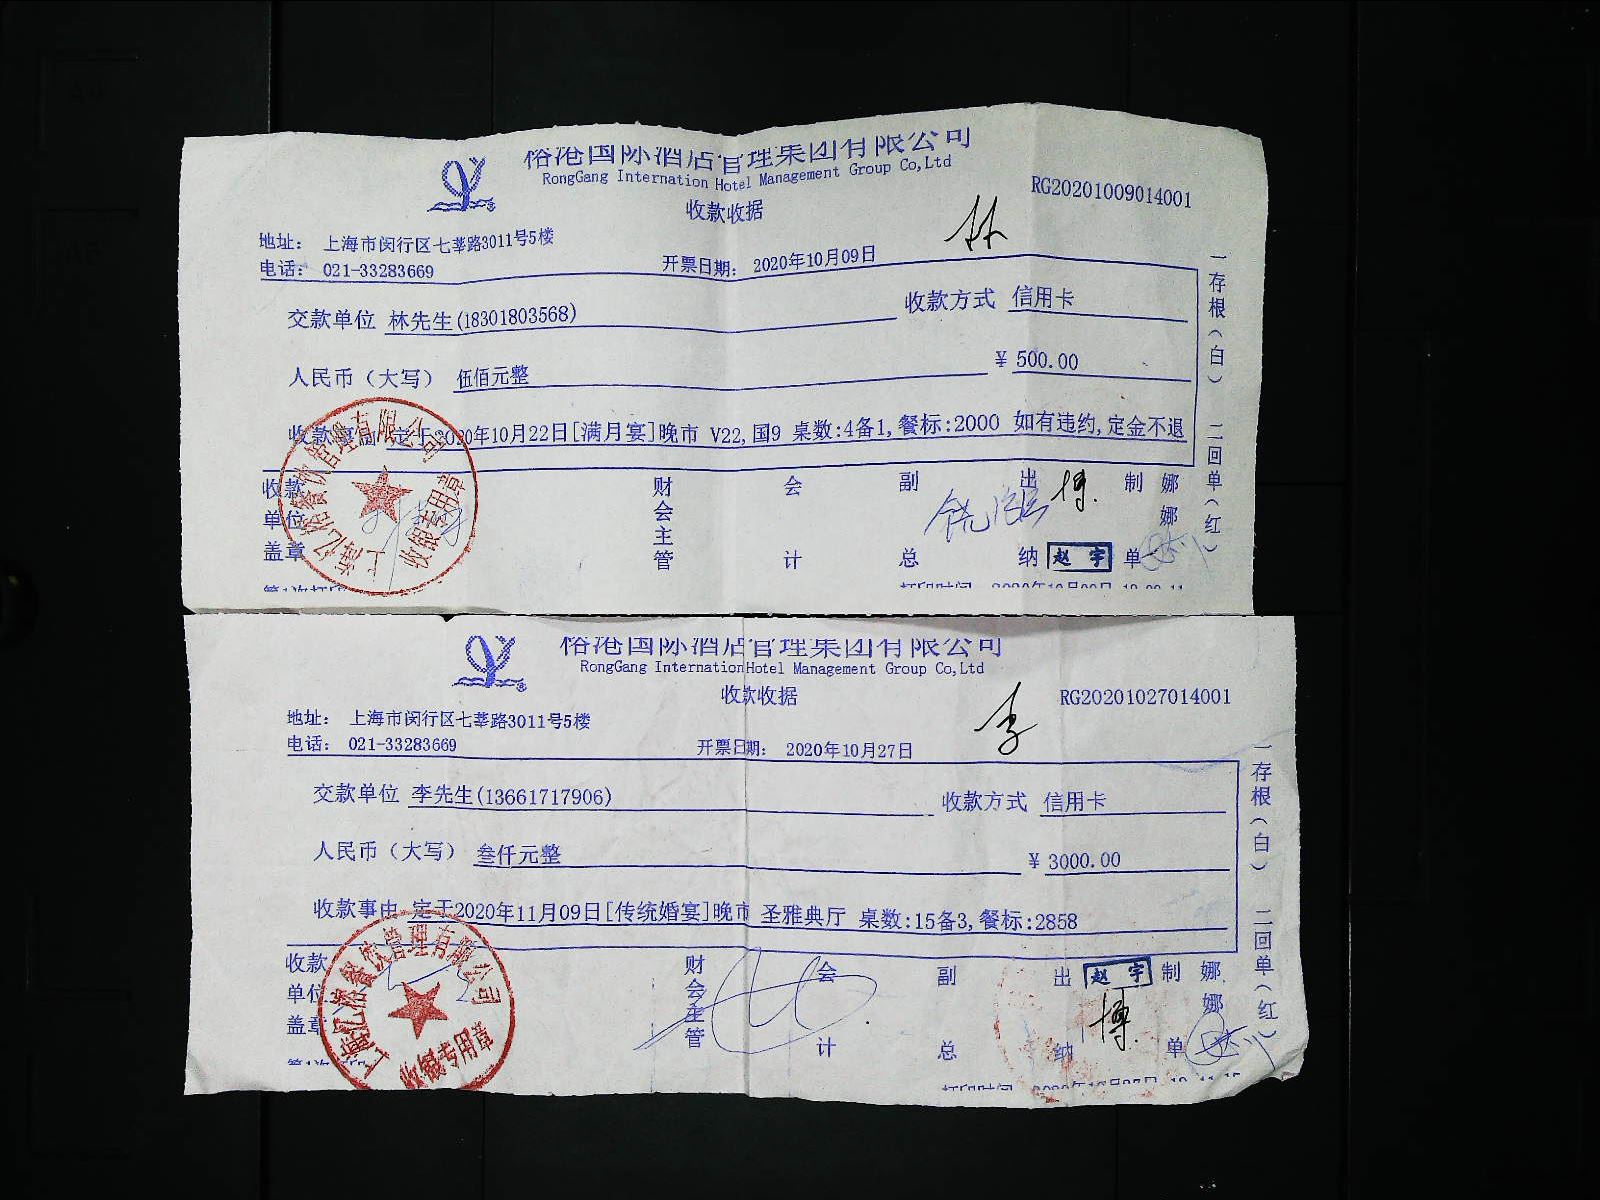 裕港国际酒店管理集团有限公司
RongGang Internation Hotel Management Group Co,Ltd
收款收据
RG20201009014001
林
地址： 上海市闵行区七莘路3011号5楼
电话： 021-33283669
开票日期： 2020年10月09日
交款单位 林先生(18301803568)
收款方式 信用卡
人民币（大写） 伍佰元整
¥ 500.00
收款事由 定于2020年10月22日[满月宴]晚市 V22,国9 桌数:4备1,餐标:2000 如有违约,定金不退
收款单位盖章
财会主管
会计
副总
出纳
博
赵宇
制单
娜娜
一存根（白） 二回单（红）
上海亿裕餐饮管理有限公司
收银专用章
裕港国际酒店管理集团有限公司
RongGang Internation Hotel Management Group Co,Ltd
收款收据
RG20201027014001
李
地址： 上海市闵行区七莘路3011号5楼
电话： 021-33283669
开票日期： 2020年10月27日
交款单位 李先生(13661717906)
收款方式 信用卡
人民币（大写） 叁仟元整
¥ 3000.00
收款事由 定于2020年11月09日[传统婚宴]晚市 圣雅典厅 桌数:15备3,餐标:2858
收款单位盖章
财会主管
会计
副总
出纳
赵宇
博
制单
娜娜
一存根（白） 二回单（红）
上海亿裕餐饮管理有限公司
收银专用章